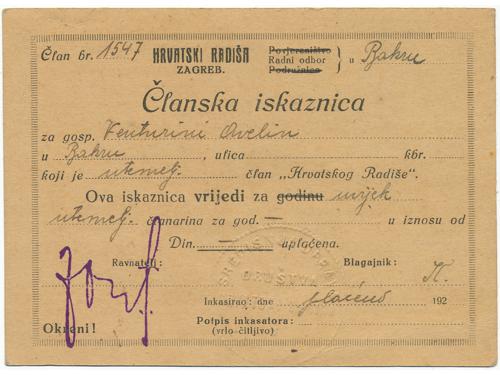 Član br. 1547 HRVATSKI RADIŠA Povjereništvo
ZAGREB. Radni odbor u Bakru
Podružnica
Članska iskaznica
za gosp. Venturini Avelin
u Bakru, ulica kbr.
koji je utemelj. član „Hrvatskog Radiše".
Ova iskaznica vrijedi za godinu uvijek
utemelj. članarina za god. — u iznosu od
Din. — uplaćena.
Ravnatelj: Blagajnik:
Inkasirao: dne plaćeno 192
Okreni! Potpis inkasatora:
(vrlo čitljivo)